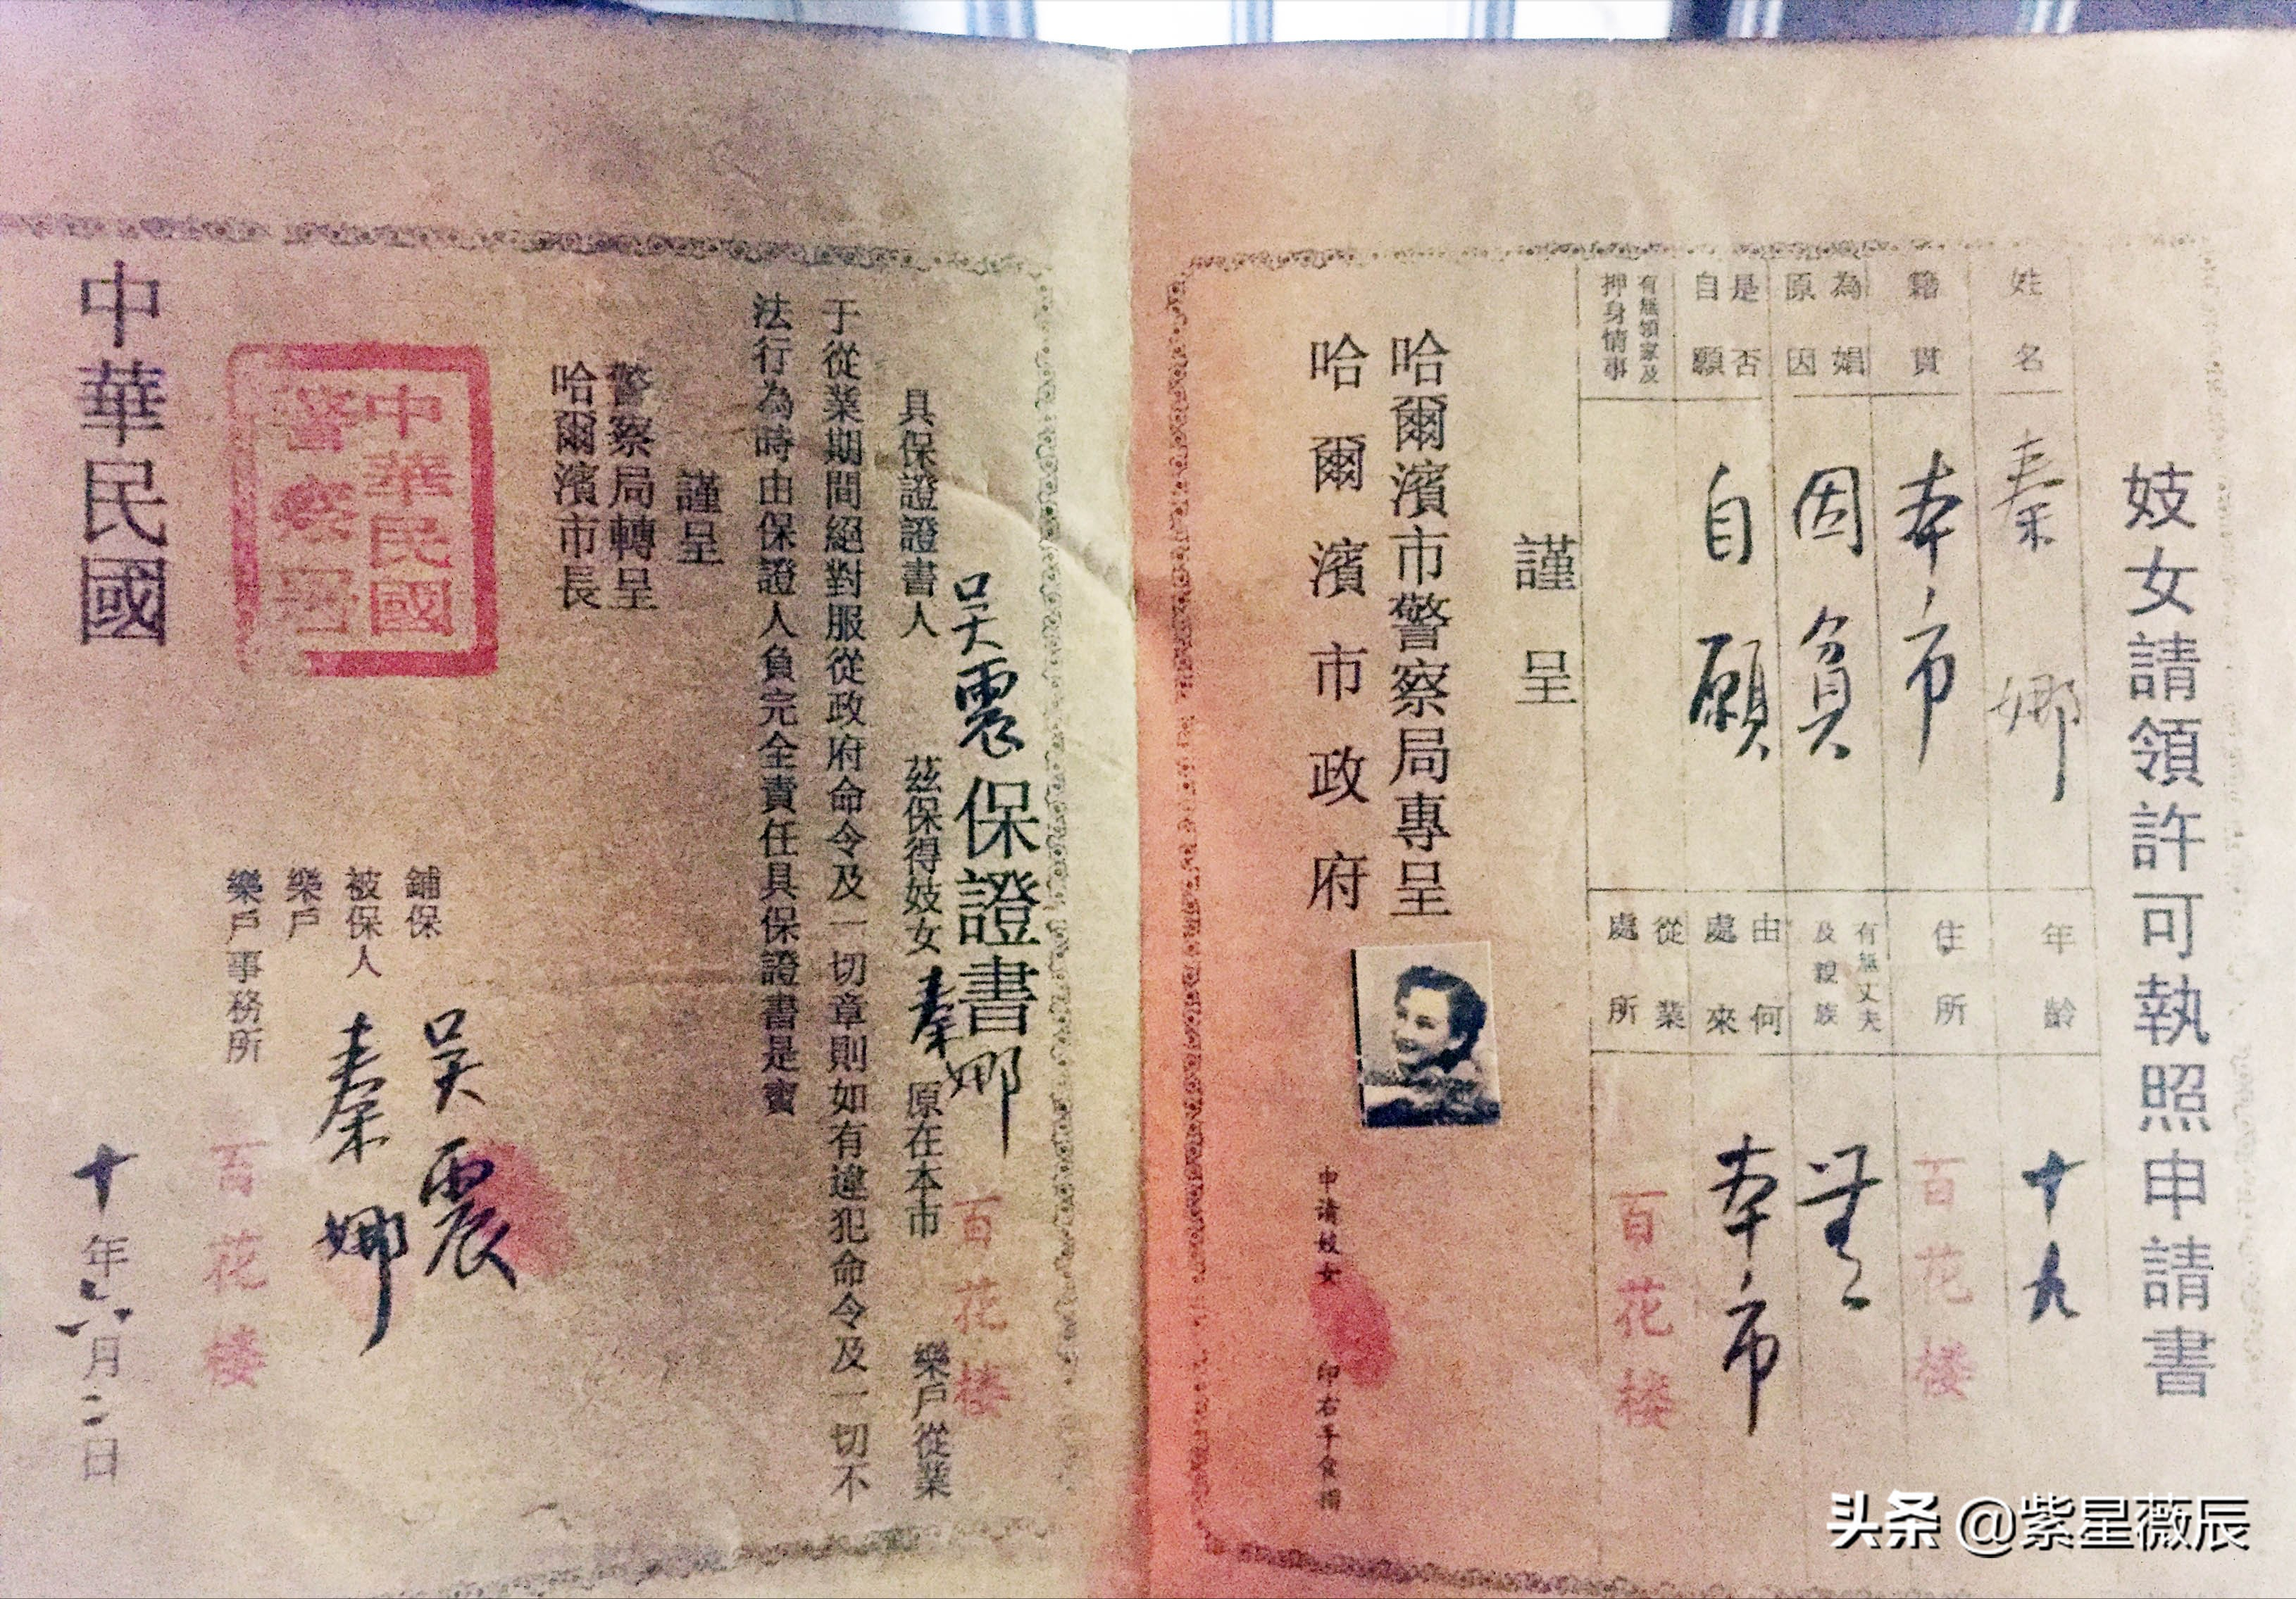 妓女請領許可執照申請書
姓名 秦娜
年齡 十九
籍貫 本市
住所 百花楼
為娼原因 因負
有無丈夫及親族 無
是否自願 自願
由何處來 本市
有無領家及押身情事
從業處所 百花楼
謹呈
哈爾濱市警察局專呈
哈爾濱市政府
申请妓女 印右手食指
保證書
具保證證書人 吴震 茲保得妓女 秦娜 原在本市 百花楼 樂戶從業
于從業期間絕對服從政府命令及一切章則如有違犯命令及一切不
法行為時由保證人負完全責任具保證書是實
謹呈
警察局轉呈
哈爾濱市長
鋪保 吴震
被保人 秦娜
樂戶
樂戶事務所 百花楼
中華民國
警察署
中華民國 十年六月二日
头条 @紫星薇辰